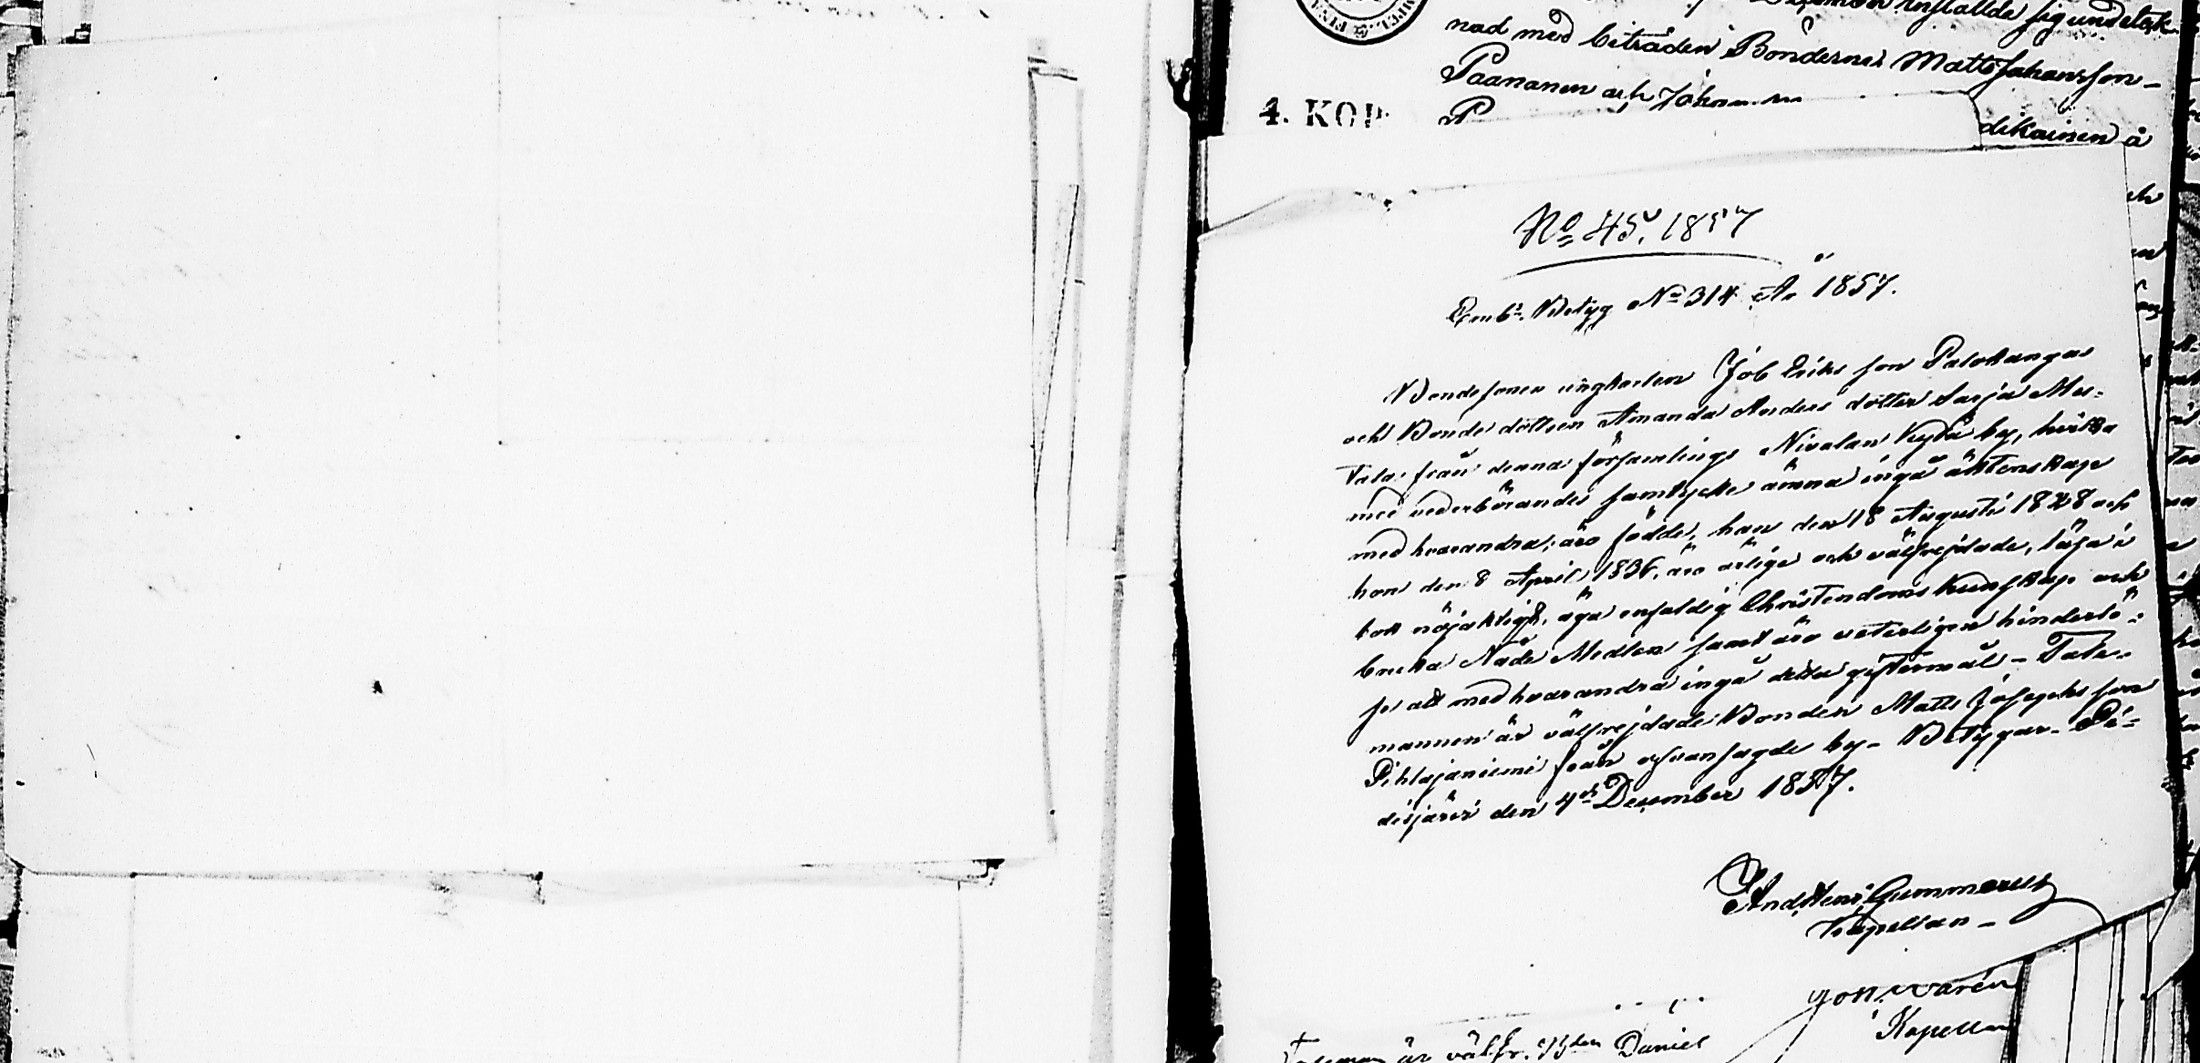 nad med biträden Bönderne Matts Johansson
Paananen och Johan
4. KOP.
dikainen å
No 45. 1857
Emb. Betyg No 314 År 1857.
Bondesonen ungkarlen Job Eriks son Palokangas
och Bonde dottren Amanda Anders dotter Sarja Mus-
tala från denna församlings Nivalan Kydä by, hvilka
med vederbörandes samtycke ämna ingå äktenskap
med hvarandra; äro födde, han den 18 Augusti 1828 och
hon den 8 April 1836, äro ärlige och välfrejdade, läsa i
bok nöjaktigt, äga enfaldig Christendoms kunskap och
bruka Nåde Medlen samt äro veterligen hinderlö-
se att med hvarandra ingå detta giftermål - Tale-
mannen är välfrejdade Bonden Matts Josephs son
Pihlajaniemi från ofvansagde by - Betygar. Pi-
disjärvi den 4de December 1857.
And. Henr. Gummerus
Kapellan -
Kapellan
Talman är välfr. Bden Daniel